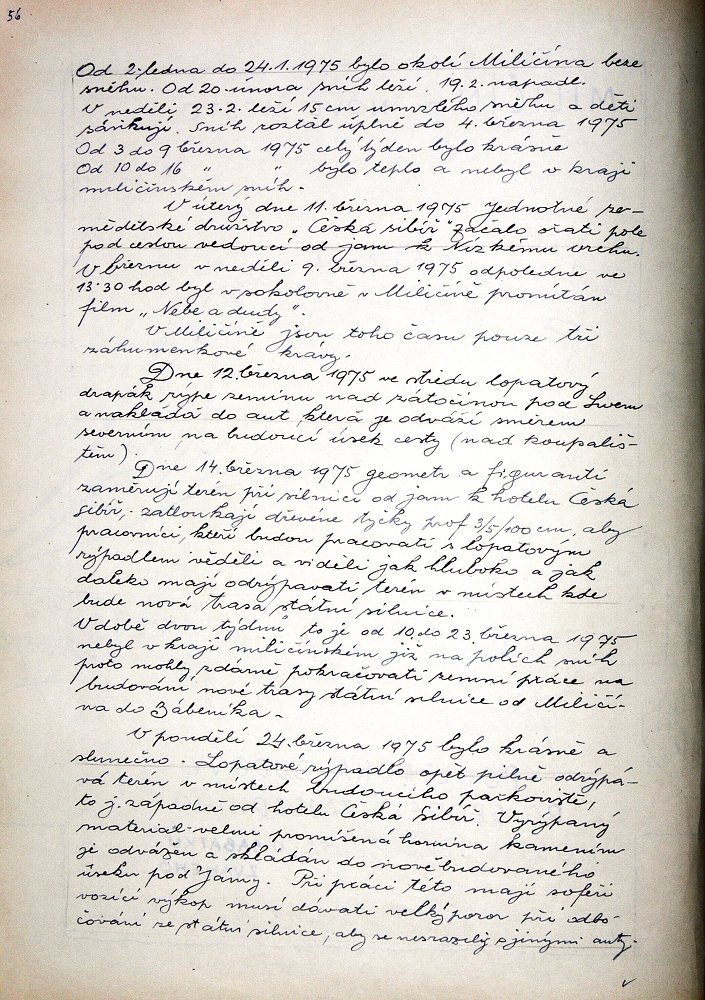 56
Od 2. ledna do 24.1.1975 bylo okolí Miličína beze
sněhu. Od 20. února sníh leží. 19.2. napadl.
V neděli 23.2. leží 15 cm umrzlého sněhu a děti
sáňkují. Sníh roztál úplně do 4. března 1975
Od 3 do 9 března 1975 celý týden bylo krásně
Od 10 do 16 " " bylo teplo a nebyl v kraji
miličínském sníh.
V úterý dne 11. března 1975 Jednotné ze-
mědělské družstvo „Česká sibiř" začalo orati pole
pod cestou vedoucí od jam k Nízkému vrchu.
V březnu v neděli 9. března 1975 odpoledne ve
13.30 hod byl v sokolovně v Miličíně promítán
film „Nebe a dudy".
V Miličíně jsou toho času pouze tři
záhumenkové krávy.
Dne 12. března 1975 ve středu lopatový
drapák rýpe zeminu nad zátočinou pod Lvem
a nakládá do aut, která je odváží směrem
severním, na budoucí úsek cesty (nad koupališ-
těm).
Dne 14. března 1975 geometr a figuranti
zaměřují terén při silnici od jam k hotelu Česká
Sibiř, - zatloukají dřevěné tyčky prof 3/5/100 cm, aby
pracovníci, kteří budou pracovati s lopatovým
rýpadlem věděli a viděli jak hluboko a jak
daleko mají odrýpavati terén v místech kde
bude nová trasa státní silnice.
V době dvou týdnů, to je od 10. do 23. března 1975
nebyl v kraji miličínském již na polích sníh
proto mohly zdárně pokračovati zemní práce na
budování nové trasy státní silnice od Miličí-
na do Zábeníka -
V pondělí 24. března 1975 bylo krásně a
slunečno. Lopatové rýpadlo opět pilně odrýpá-
vá terén v místech budoucího parkoviště,
to j. západně od hotelu Česká Sibiř. Vyrýpaný
material-velmi promíšená hornina kamením
je odvážen a skládán do nově budovaného
úseku pod Jámy. Při práci této mají šofeři
vozící výkop musí dávati velký pozor při odbo-
čování ze státní silnice, aby se nesrazily s jinými auty.